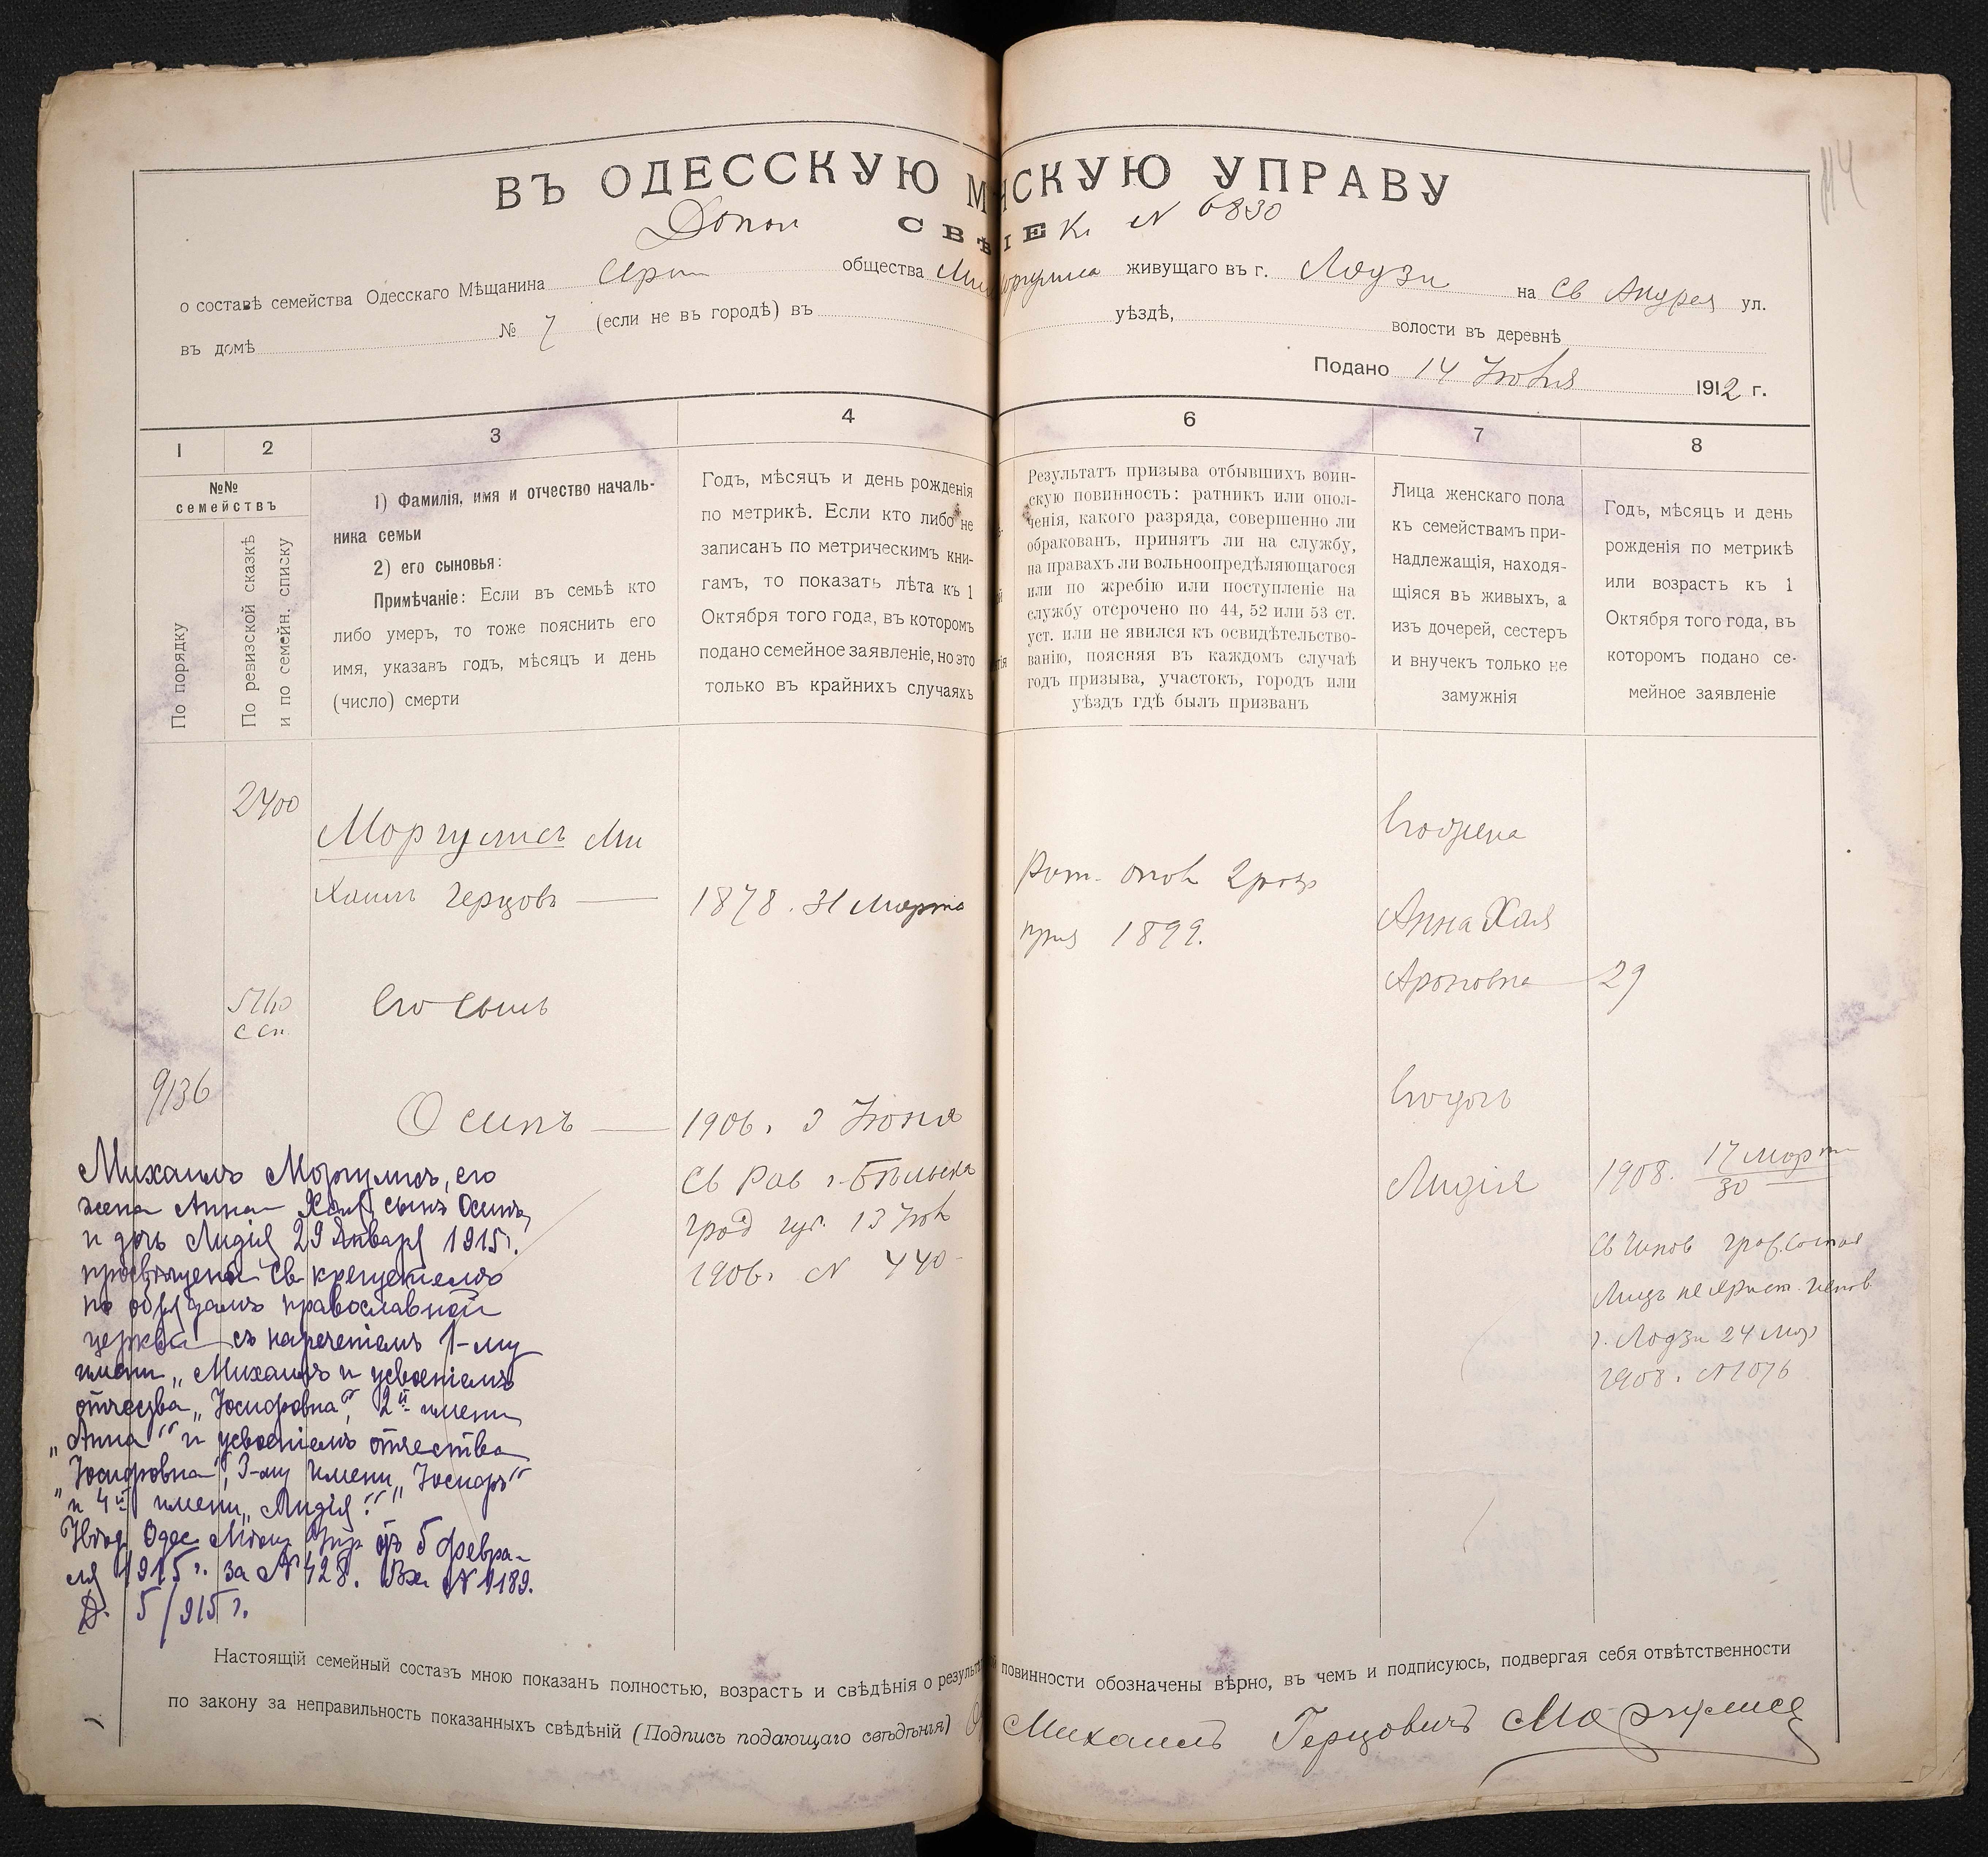 114
ВЪ ОДЕССКУЮ М НСКУЮ УПРАВУ
Допол СВѢ ІЕ К N 6830
о составѣ семейства Одесскаго Мѣщанина общества живущаго въ г. Лодзи на Св Андрея ул.
въ домѣ № 7 (если не въ городѣ) въ уѣздѣ, волости въ деревнѣ
Подано 14 Іюня 1912 г.
1
2
3
4
6
7
8
№№
семействъ
По порядку
По ревизской сказкѣ
и по семейн. списку
1) Фамилія, имя и отчество началь-
ника семьи
2) его сыновья:
Примѣчаніе: Если въ семьѣ кто
либо умеръ, то тоже пояснить его
имя, указавъ годъ, мѣсяцъ и день
(число) смерти
Годъ, мѣсяцъ и день рожденія
по метрикѣ. Если кто либо не
записанъ по метрическимъ кни-
гамъ, то показать лѣта къ 1
Октября того года, въ которомъ
подано семейное заявленіе, но это
только въ крайнихъ случаяхъ
Результатъ призыва отбывшихъ воин-
скую повинность: ратникъ или опол-
ченія, какого разряда, совершенно ли
обракованъ, принятъ ли на службу,
на правахъ ли вольноопредѣляющагося
или по жребію или поступленіе на
службу отсрочено по 44, 52 или 53 ст.
уст. или не явился къ освидѣтельство-
ванію, поясняя въ каждомъ случаѣ
годъ призыва, участокъ, городъ или
уѣздъ гдѣ былъ призванъ
Лица женскаго пола
къ семействамъ при-
надлежащія, находя-
щіяся въ живыхъ, а
изъ дочерей, сестеръ
и внучекъ только не
замужнія
Годъ, мѣсяцъ и день
рожденія по метрикѣ
или возрастъ къ 1
Октября того года, въ
которомъ подано се-
мейное заявленіе
2400
Моргулисъ Ми
хаилъ Герцовъ
1878. 31 Марта
Рат. опол 2 разр
приз 1899.
Его жена
Анна Хая
Ароновна 29
5160
с сп.
Его Сынъ
9136
Осипъ
1906. 3 Іюня
Св Рав г. Бѣльска
грод губ. 13 Іюл
1906 г N 440
Его дочь
Лидія
1908. 17/30 Марта
Лицъ не христ. испов
г. Лодзи 24 Мар
1908. N 1076
Михаилъ Моргулисъ, его
жена Анна Хая, сынъ Осипъ,
и дочь Лидія 29 Января 1915 г.
просвящены св крещеніемъ
по обрядамъ православной
церкви съ нареченіемъ 1-му
имени „Михаилъ и усвоеніемъ
отчества „Іосифовна", 2й имени
„Анна" и усвоеніемъ отчества
„Іосифовна", 3-му имени „Іосифъ"
и 4й имени „Лидія".
Одес Мѣщ Упр отъ 5 февра-
ля 1915 г. за N 428. Вх N 1189.
Д. 5/915 г.
Настоящій семейный составъ мною показанъ полностью, возрастъ и свѣдѣнія о результ повинности обозначены вѣрно, въ чемъ и подписуюсь, подвергая себя отвѣтственности
по закону за неправильность показанныхъ свѣдѣній (Подпись подающаго свѣдѣнія) Михаилъ Герцовичъ Моргулисъ